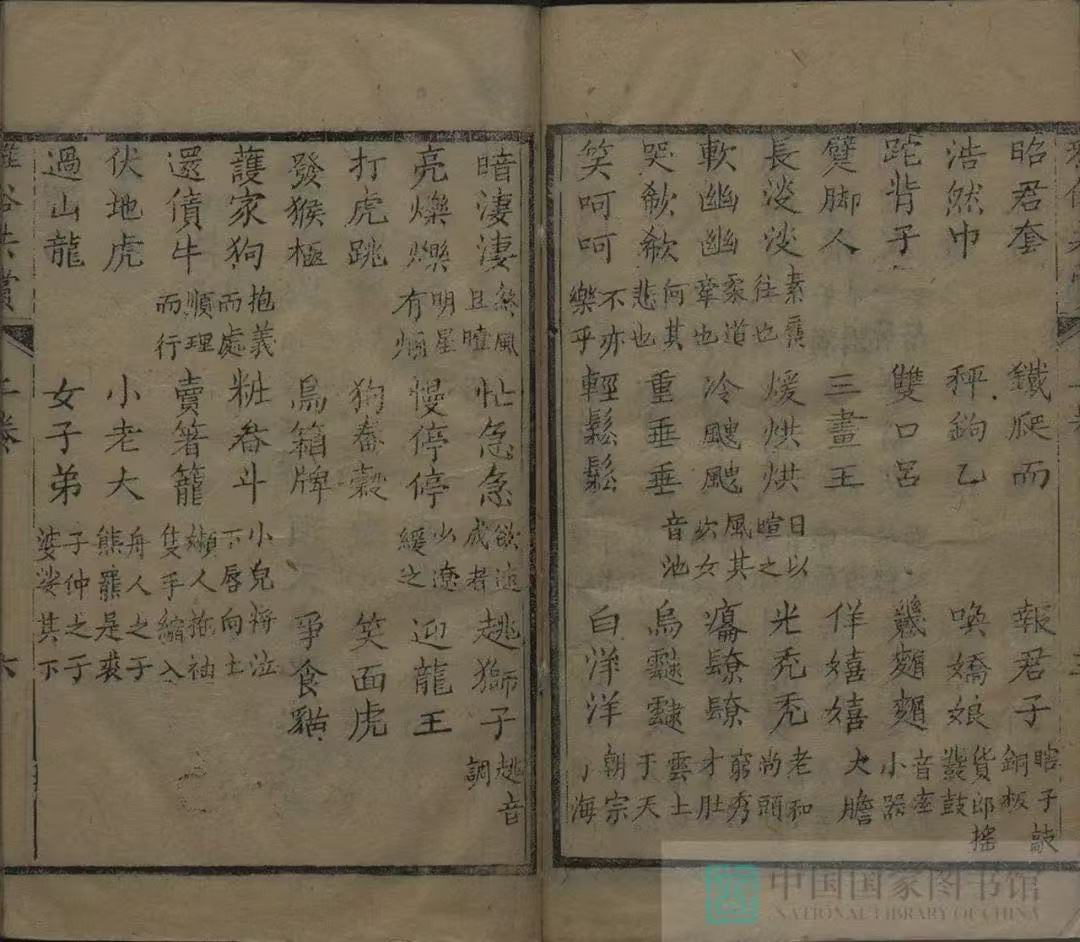 昭君套 鐵爬而 報君子 瞎子敲銅板
浩然巾 秤鉤乙 喚嬌娘 貨郎搖鼗鼓
跎背子 雙口呂 小器
躄脚人 三畫王 佯嬉嬉 大膽
長淡淡 往也 煖烘烘 日以暄之 光禿禿 老和尚頭
軟幽幽 家道 也 冷颼颼 風其吹女 窮秀才肚
哭欷欷 何其悲也 重垂垂 音池 烏霴霴 雲上于天
笑呵呵 不亦樂乎 輕鬆鬆 白洋洋 朝宗于海
暗淒淒 風且曀 忙急急 欲速成者 趒獅子 趒音調
亮爍爍 明星有爛 慢停停 少遼緩之 迎龍王
打虎跳 狗畚穀 笑面虎
發猴極 牌 爭食貓
護家狗 抱義而處 粧畚斗 小兒將泣下唇向上
還債牛 順理而行 賣箸籠 嬾人拖袖隻手縮入
伏地虎 小老大 舟人之子熊羆是裘
過山龍 女子弟 子仲之子婆娑其下
雅俗共賞 上卷 六
中国国家图书馆
NATIONAL LIBRARY OF CHINA